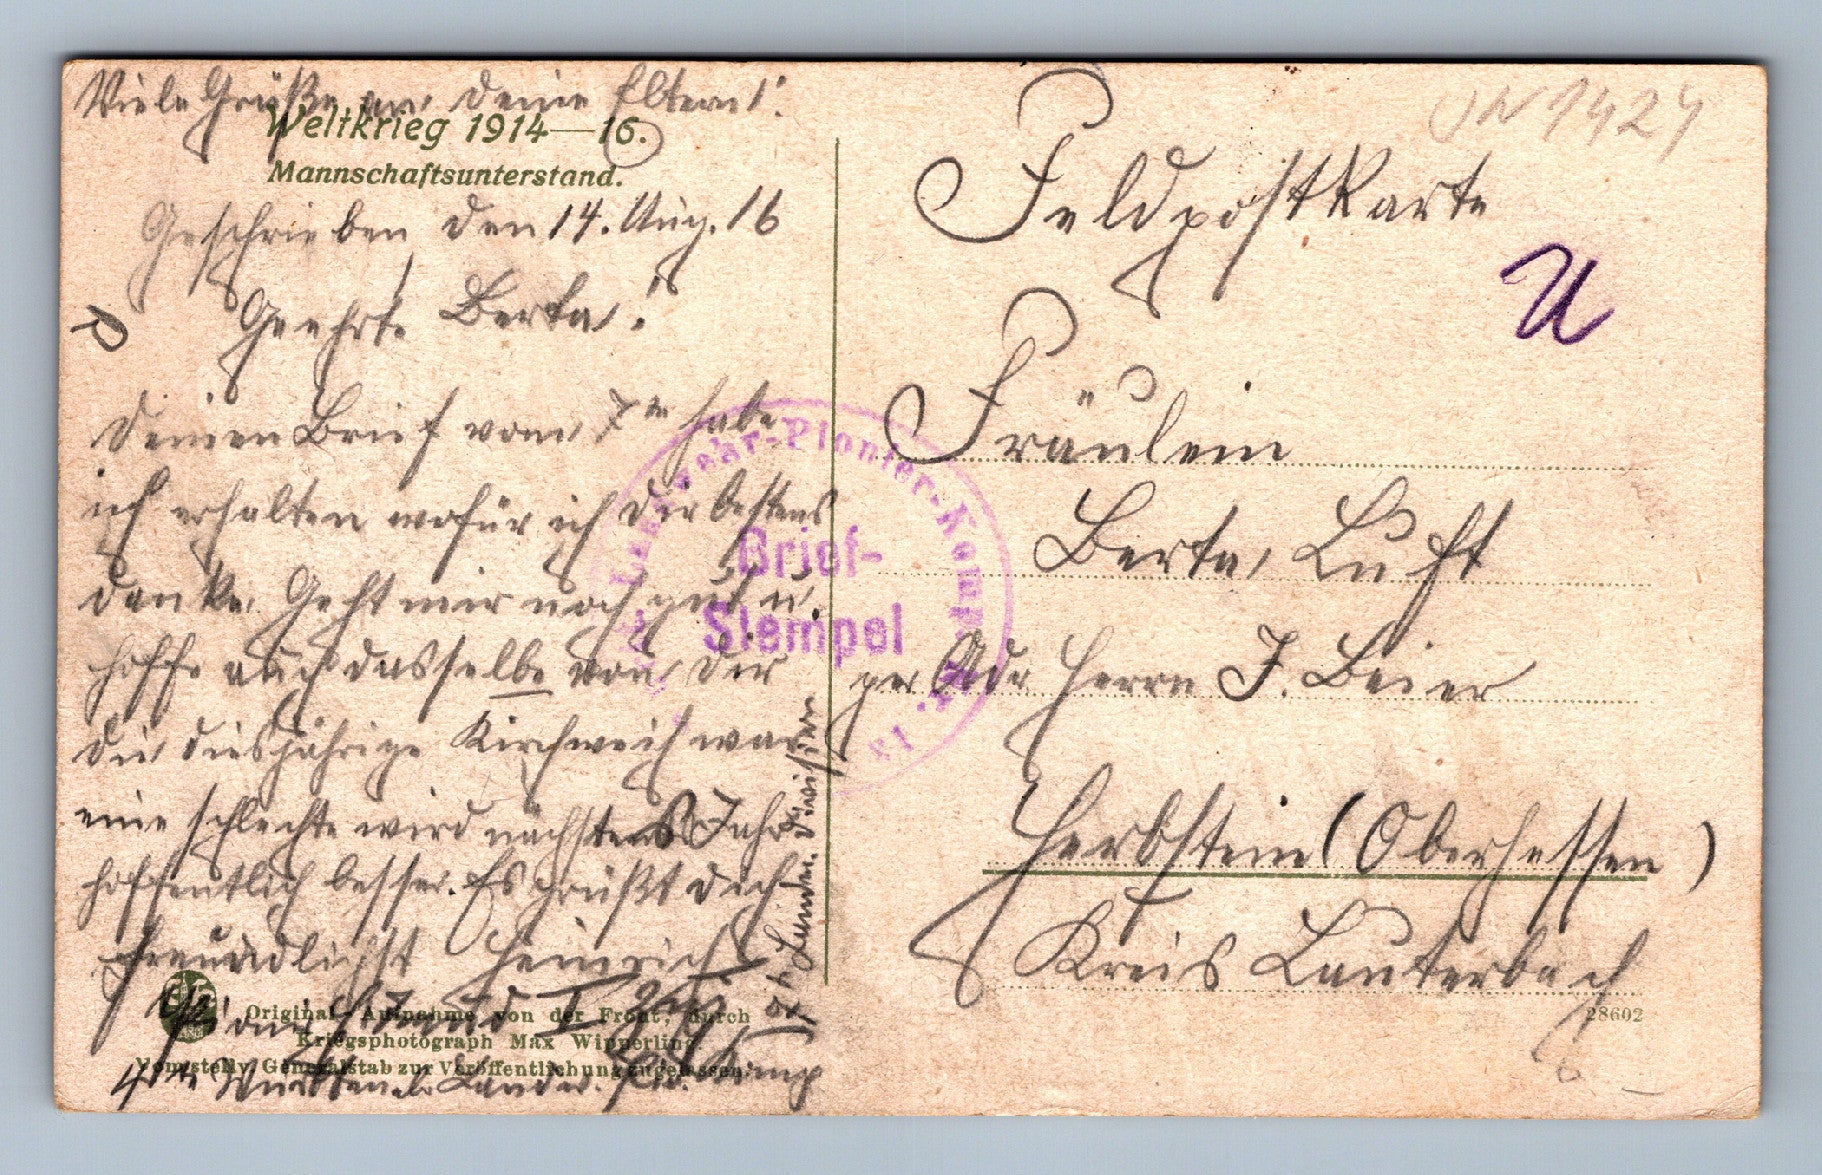 Viele Grüße an deine Eltern!
Weltkrieg 1914—16.
Mannschaftsunterstand.
Geschrieben den 14. Aug. 16
Geehrte Berta!
Deinen Brief vom 7ten habe
ich erhalten wofür ich dir bestens
danke. Geht mir noch gut u.
hoffe auch dasselbe von dir
Die diesjährige Kirchweih war
eine schlechte wird nächstens Jahr
hoffentlich besser. Es grüßt dich
freundlichst Heinrich
Original-Aufnahme von der Front, durch
Kriegsphotograph Max Wipperling.
Vom stellv. Generalstab zur Veröffentlichung zugelassen.
Württemb. Landw. Pion. Komp
Landw. Division
Landwehr-Pionier-Komp.
Brief-
Stempel
Feldpostkarte
U
Fräulein
Berta Luft
per Adr Herrn J. Beier
Herbstein (Oberhessen)
Kreis Lauterbach
28602